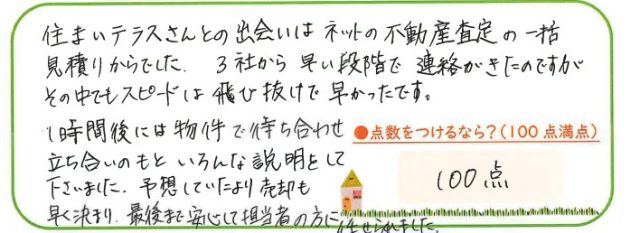 住まいテラスさんとの出会いはネットの不動産査定の一括
見積りからでした。3社から早い段階で連絡がきたのですが
その中でもスピードは飛び抜けて早かったです。
1時間後には物件で待ち合わせ
立ち合いのもといろんな説明をして
下さいました。予想していたより売却も
早く決まり、最後まで安心して担当者の方に任せられました。
●点数をつけるなら?(100点満点)
100点